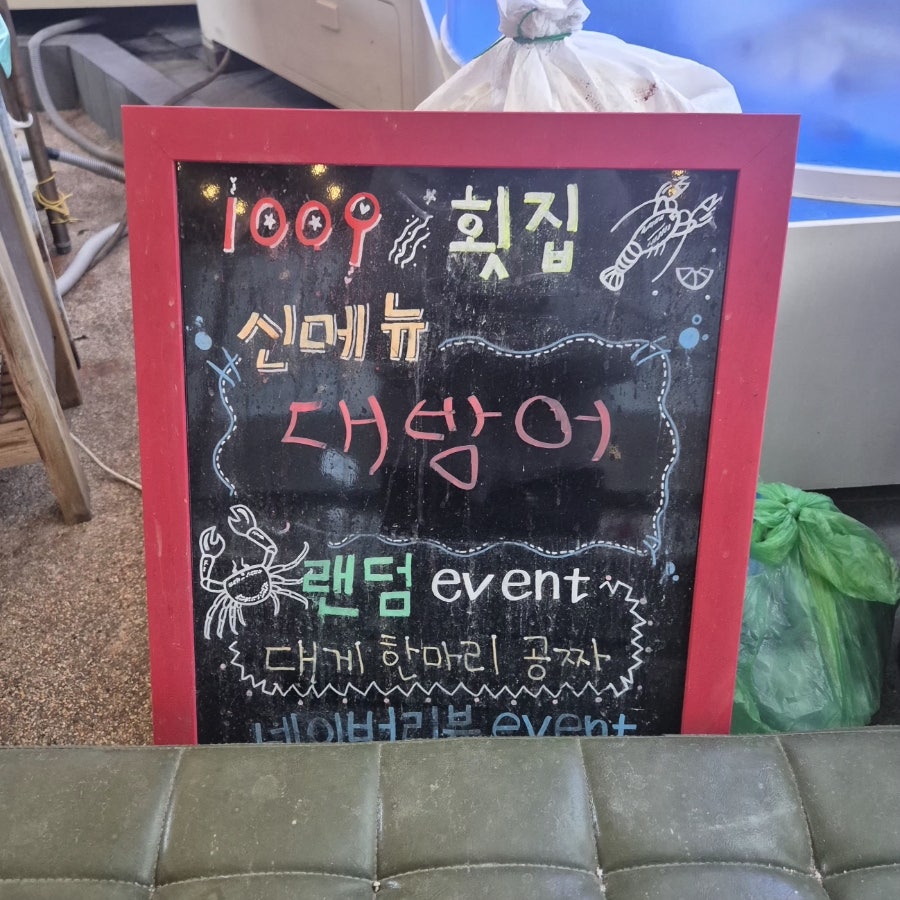 1009 횟집
신메뉴
대방어
랜덤 event
대게 한마리 공짜
네이버리뷰 event